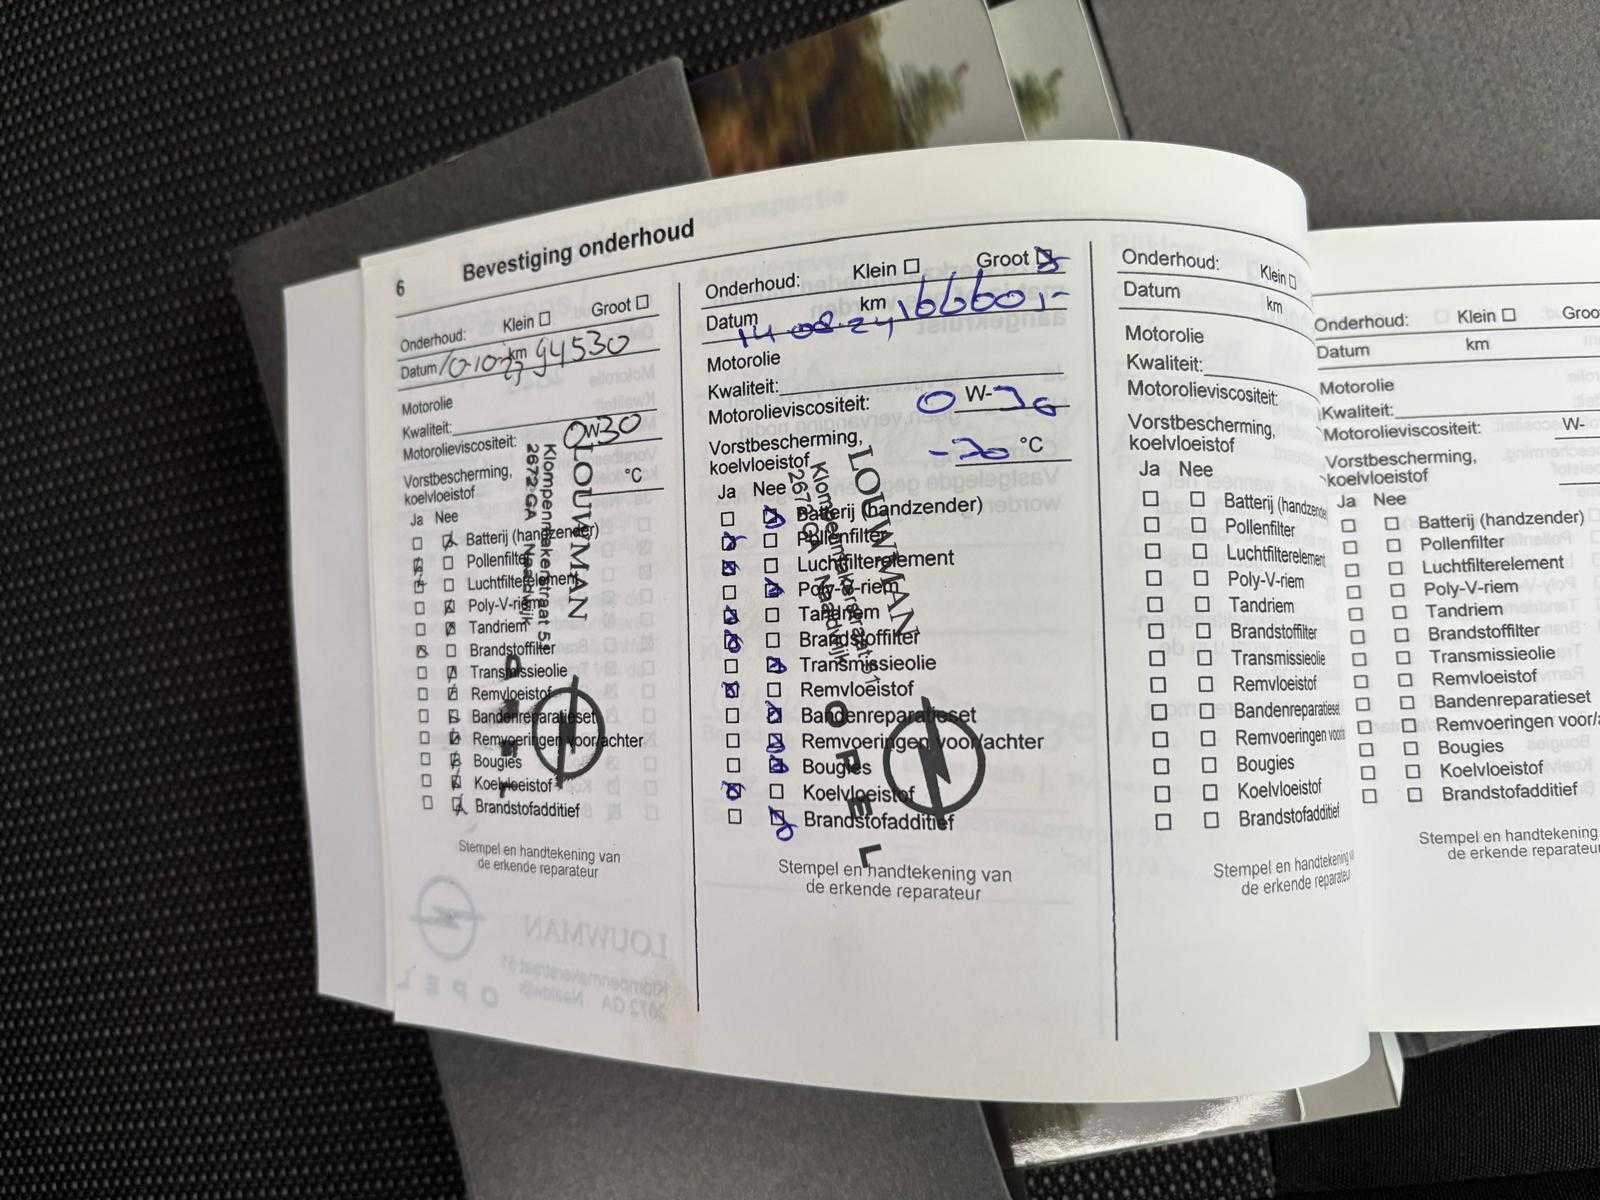 6 Bevestiging onderhoud
Onderhoud: Klein Groot
Datum 10-10-23 km 94530
Motorolie
Kwaliteit:
Motorolieviscositeit: 0W30
Vorstbescherming,
koelvloeistof °C
Ja Nee
Batterij (handzender)
Pollenfilter
Luchtfilterelement
Poly-V-riem
Tandriem
Brandstoffilter
Transmissieolie
Remvloeistof
Bandenreparatieset
Remvoeringen voor/achter
Bougies
Koelvloeistof
Brandstofadditief
LOUWMAN
Klompenmakerstraat 51
2672 GA Naaldwijk
OPEL
Stempel en handtekening van
de erkende reparateur
Onderhoud: Klein Groot
Datum 14-08-24 km
Motorolie
Kwaliteit:
Motorolieviscositeit: 0 W-30
Vorstbescherming,
koelvloeistof °C
Ja Nee
Batterij (handzender)
Pollenfilter
Luchtfilterelement
Poly-V-riem
Tandriem
Brandstoffilter
Transmissieolie
Remvloeistof
Bandenreparatieset
Remvoeringen voor/achter
Bougies
Koelvloeistof
Brandstofadditief
LOUWMAN
Klompenmakerstraat 51
2672 GA Naaldwijk
OPEL
Stempel en handtekening van
de erkende reparateur
Onderhoud: Klein
Datum km
Motorolie
Kwaliteit:
Motorolieviscositeit:
Vorstbescherming,
koelvloeistof
Ja Nee
Batterij (handzende
Pollenfilter
Luchtfilterelement
Poly-V-riem
Tandriem
Brandstoffilter
Transmissieolie
Remvloeistof
Bandenreparatieset
Remvoeringen voor/
Bougies
Koelvloeistof
Brandstofadditief
Stempel en handtekening v
de erkende reparateu
Onderhoud: Klein Groo
Datum km
Motorolie
Kwaliteit:
Motorolieviscositeit: W-
Vorstbescherming,
koelvloeistof
Ja Nee
Batterij (handzender)
Pollenfilter
Luchtfilterelement
Poly-V-riem
Tandriem
Brandstoffilter
Transmissieolie
Remvloeistof
Bandenreparatieset
Remvoeringen voor/a
Bougies
Koelvloeistof
Brandstofadditief
Stempel en handtekening
de erkende reparateur